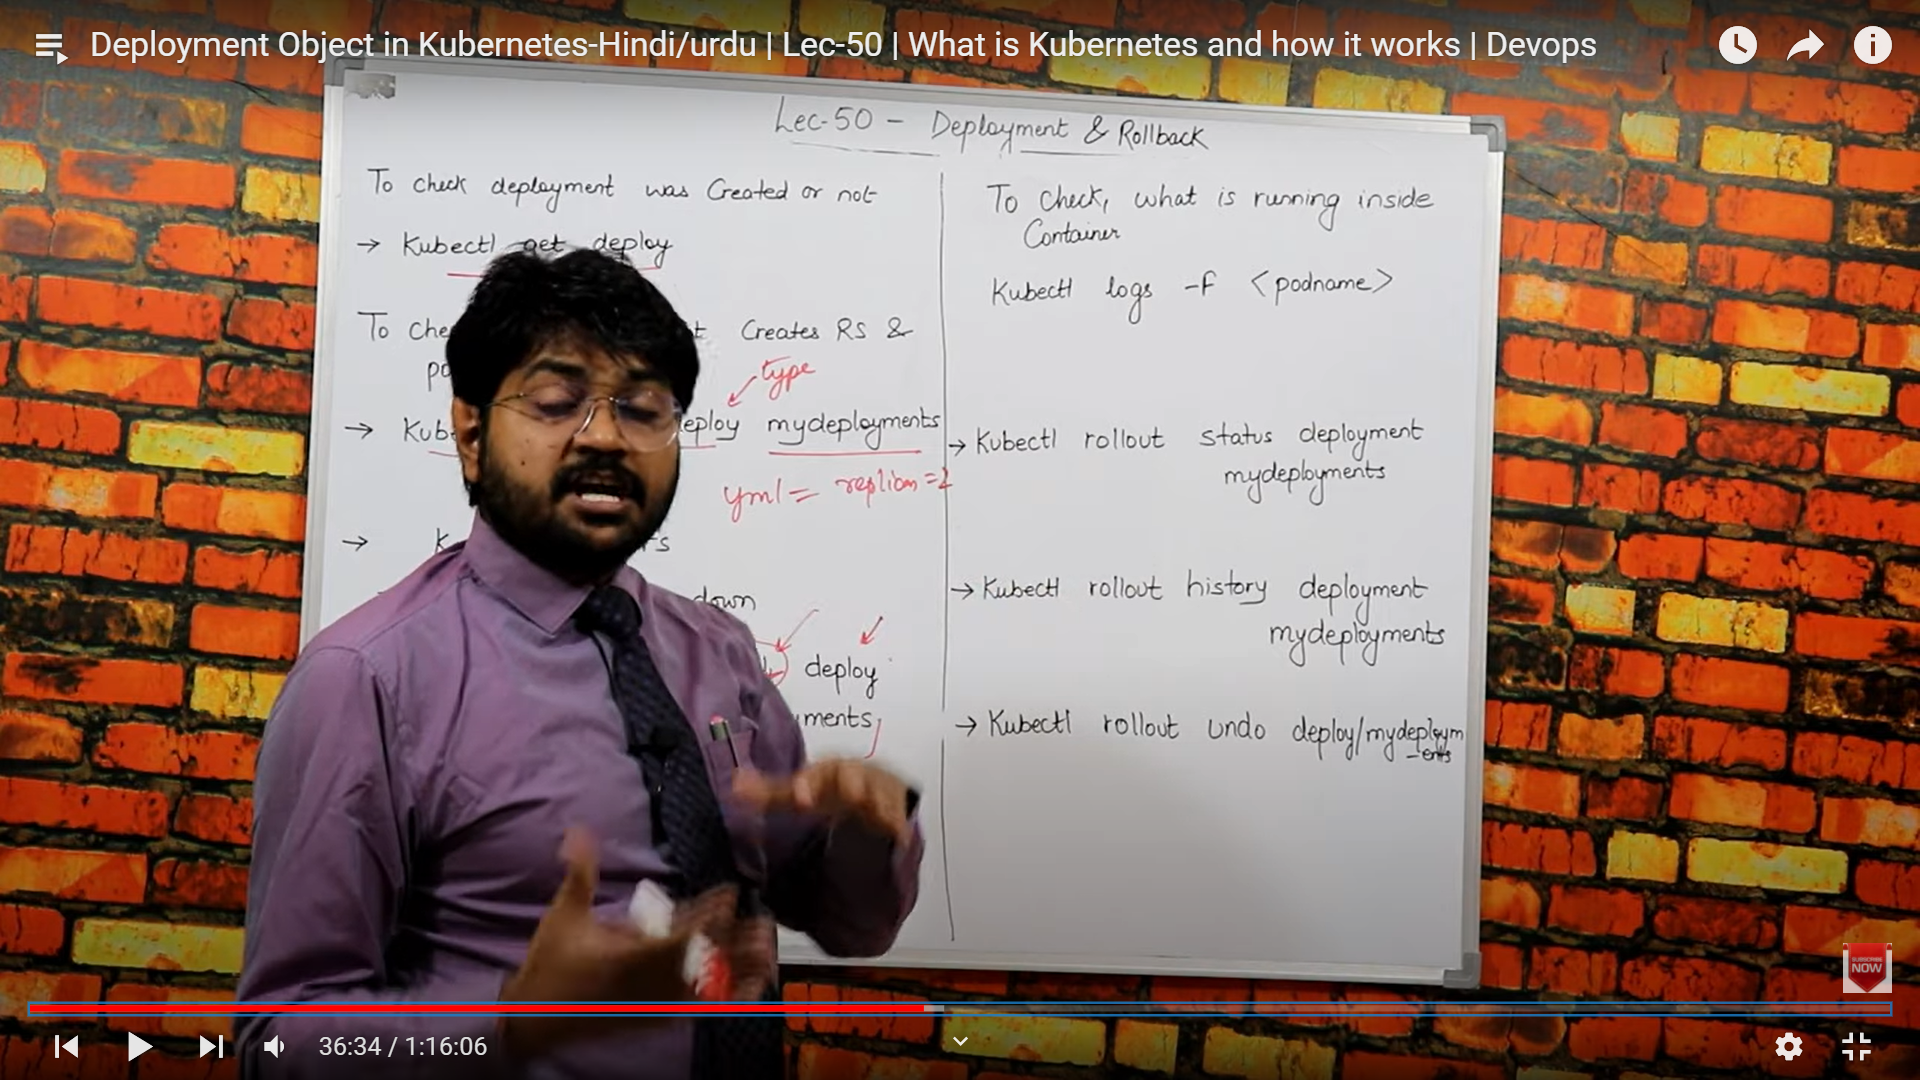 Deployment Object in Kubernetes-Hindi/urdu | Lec-50 | What is Kubernetes and how it works | Devops
Lec-50 - Deployment & Rollback
To check deployment was Created or not
→ Kubectl get deploy
To Creates RS &
type
→ eploy mydeployments
yml =
→
down
deploy
ments
To Check, what is running inside
Container
Kubectl logs -f <podname>
→ Kubectl rollout status deployment
mydeployments
→ Kubectl rollout history deployment
mydeployments
→ Kubectl rollout undo deploy/mydeploym
-ents
SUBSCRIBE
NOW
36:34 / 1:16:06